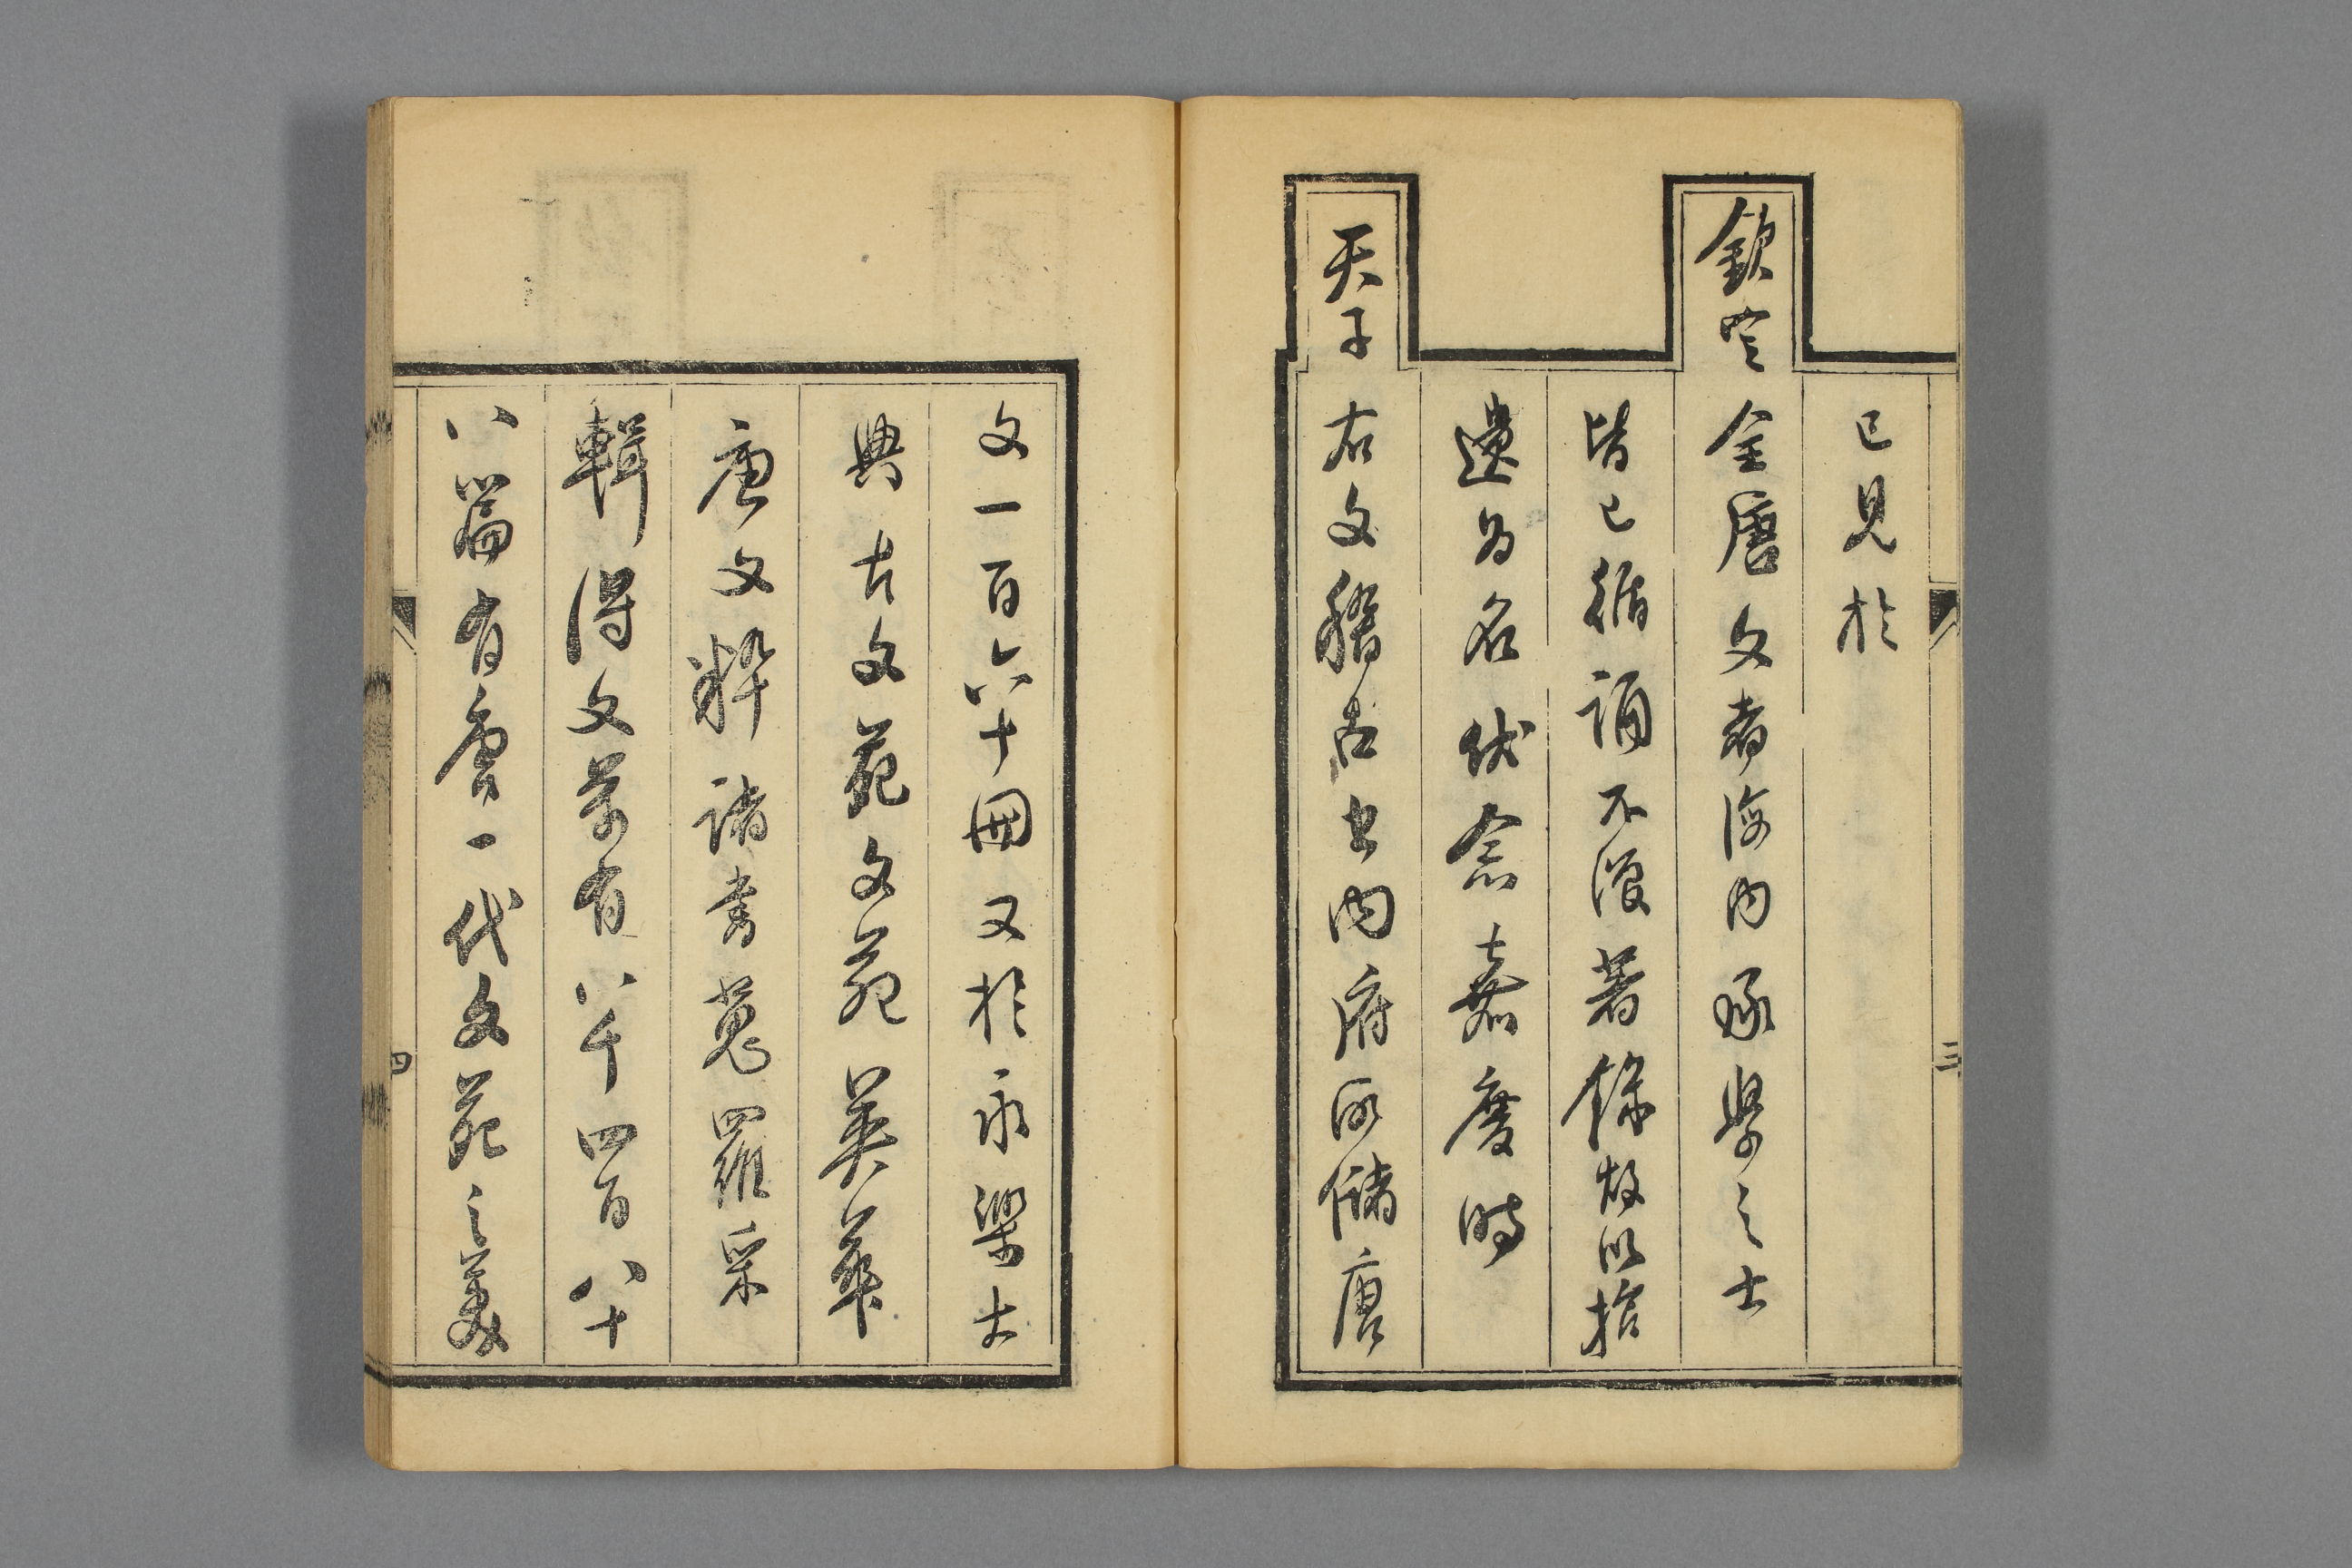 已見於
欽定全唐文者海內承學之士
皆已循誦不復著錄故以拾
遺為名伏念嘉慶時
天子右文稽古出內府所儲唐
文一百六十冊又於永樂大
典古文苑文苑英華
唐文粹諸書蒐羅采
輯得文萬有八千四百八十
八篇有唐一代文苑之美
三
四